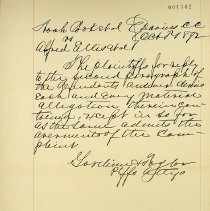 001342
Noah Cook et al
vs
Alfred Ellis et al
The plaintiffs for reply
to the second paragraph of
the defendants answer denies
each and every material
allegation therein con-
tained, except in so far
as the same admits the
averments of the Com-
plaint
Plffs Attys